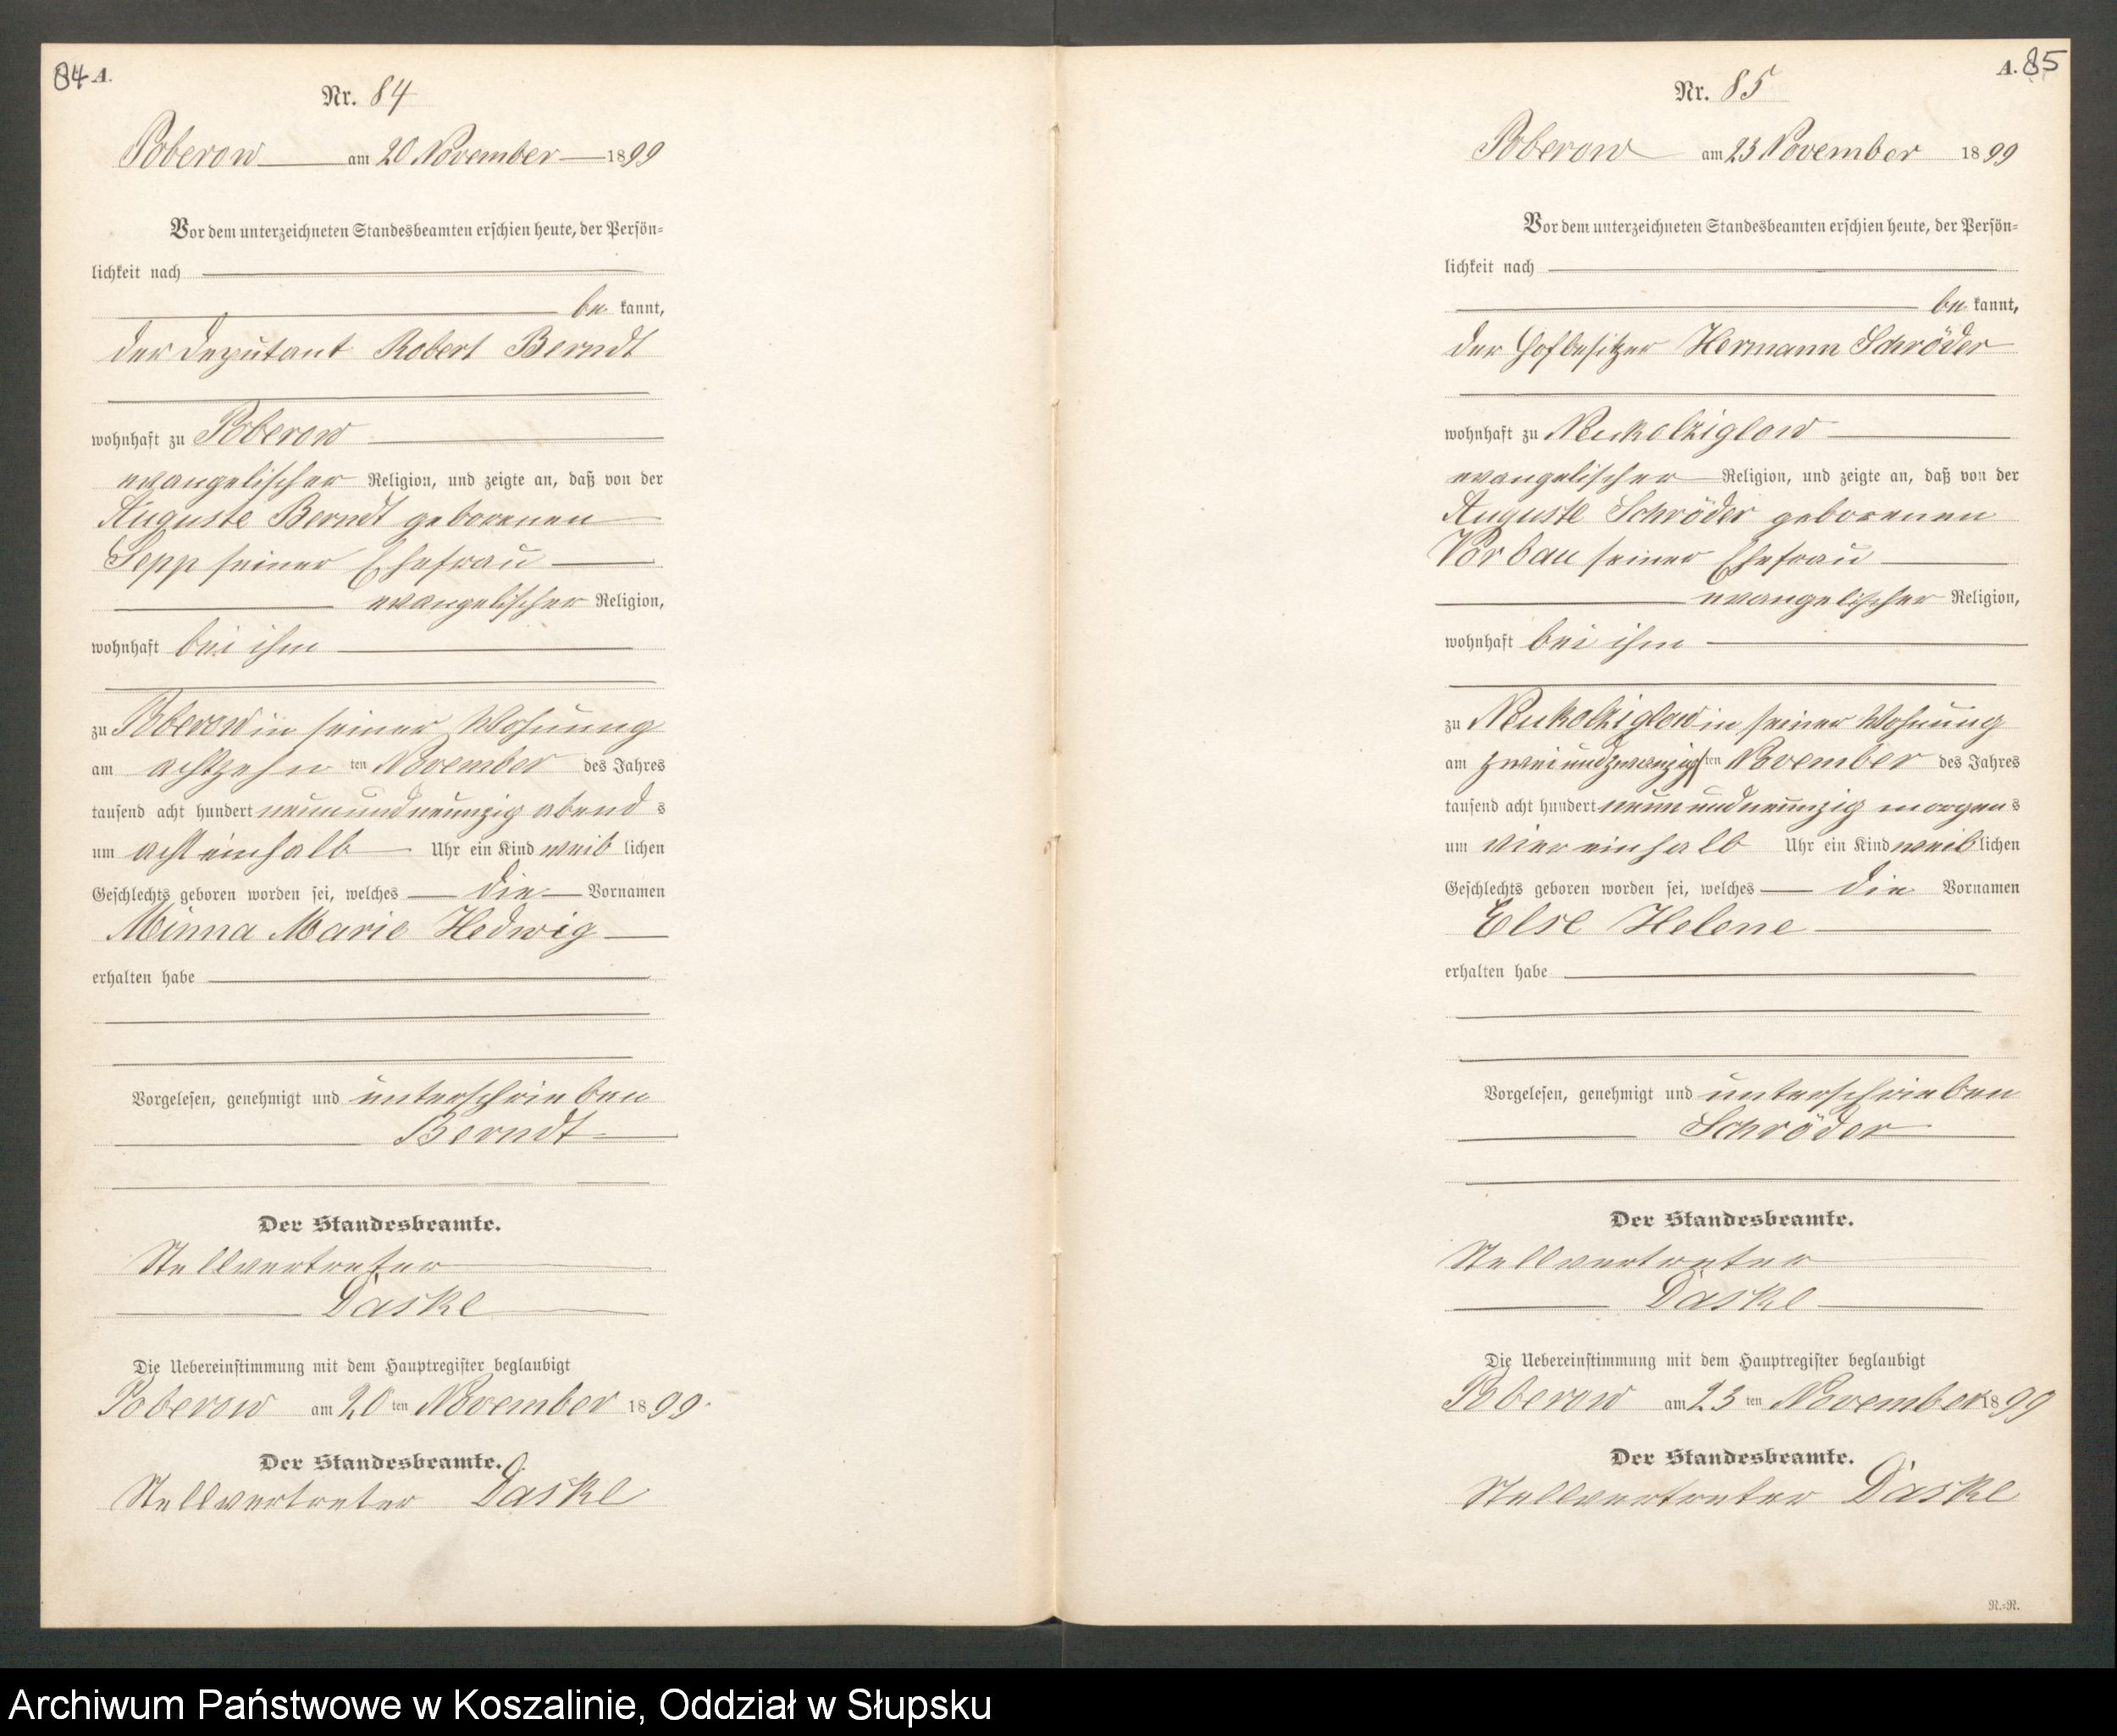 84 A.
Nr. 84
Poberow am 20 November 1899
Vor dem unterzeichneten Standesbeamten erschien heute, der Persön-
lichkeit nach
be kannt,
der Deputant Robert Berndt
wohnhaft zu Poberow
evangelischer Religion, und zeigte an, daß von der
Auguste Berndt geborenen
Sepp seiner Ehefrau
evangelischer Religion,
wohnhaft bei ihm
zu Poberow in seiner Wohnung
am achtzehn ten November des Jahres
tausend acht hundert neunundneunzig abend s
um acht einhalb Uhr ein Kind weib lichen
Geschlechts geboren worden sei, welches die Vornamen
Minna Marie Hedwig
erhalten habe
Vorgelesen, genehmigt und unterschrieben
Berndt
Der Standesbeamte.
Stellvertreter
Daske
Die Uebereinstimmung mit dem Hauptregister beglaubigt
Poberow am 20 ten November 1899.
Der Standesbeamte.
Stellvertreter Daske
A. 85
Nr. 85
Poberow am 23 November 1899
Vor dem unterzeichneten Standesbeamten erschien heute, der Persön-
lichkeit nach
be kannt,
der Hofbesitzer Hermann Schröder
wohnhaft zu Neukolziglow
evangelischer Religion, und zeigte an, daß von der
Auguste Schröder geborenen
Vorbau seiner Ehefrau
evangelischer Religion,
wohnhaft bei ihm
zu Neukolziglow in seiner Wohnung
am zweiundzwanzigs ten November des Jahres
tausend acht hundert neunundneunzig morgen s
um vier einhalb Uhr ein Kind weib lichen
Geschlechts geboren worden sei, welches die Vornamen
Else Helene
erhalten habe
Vorgelesen, genehmigt und unterschrieben
Schröder
Der Standesbeamte.
Stellvertreter
Daske
Die Uebereinstimmung mit dem Hauptregister beglaubigt
Poberow am 23 ten November 1899
Der Standesbeamte.
Stellvertreter Daske
R.=R.
Archiwum Państwowe w Koszalinie, Oddział w Słupsku